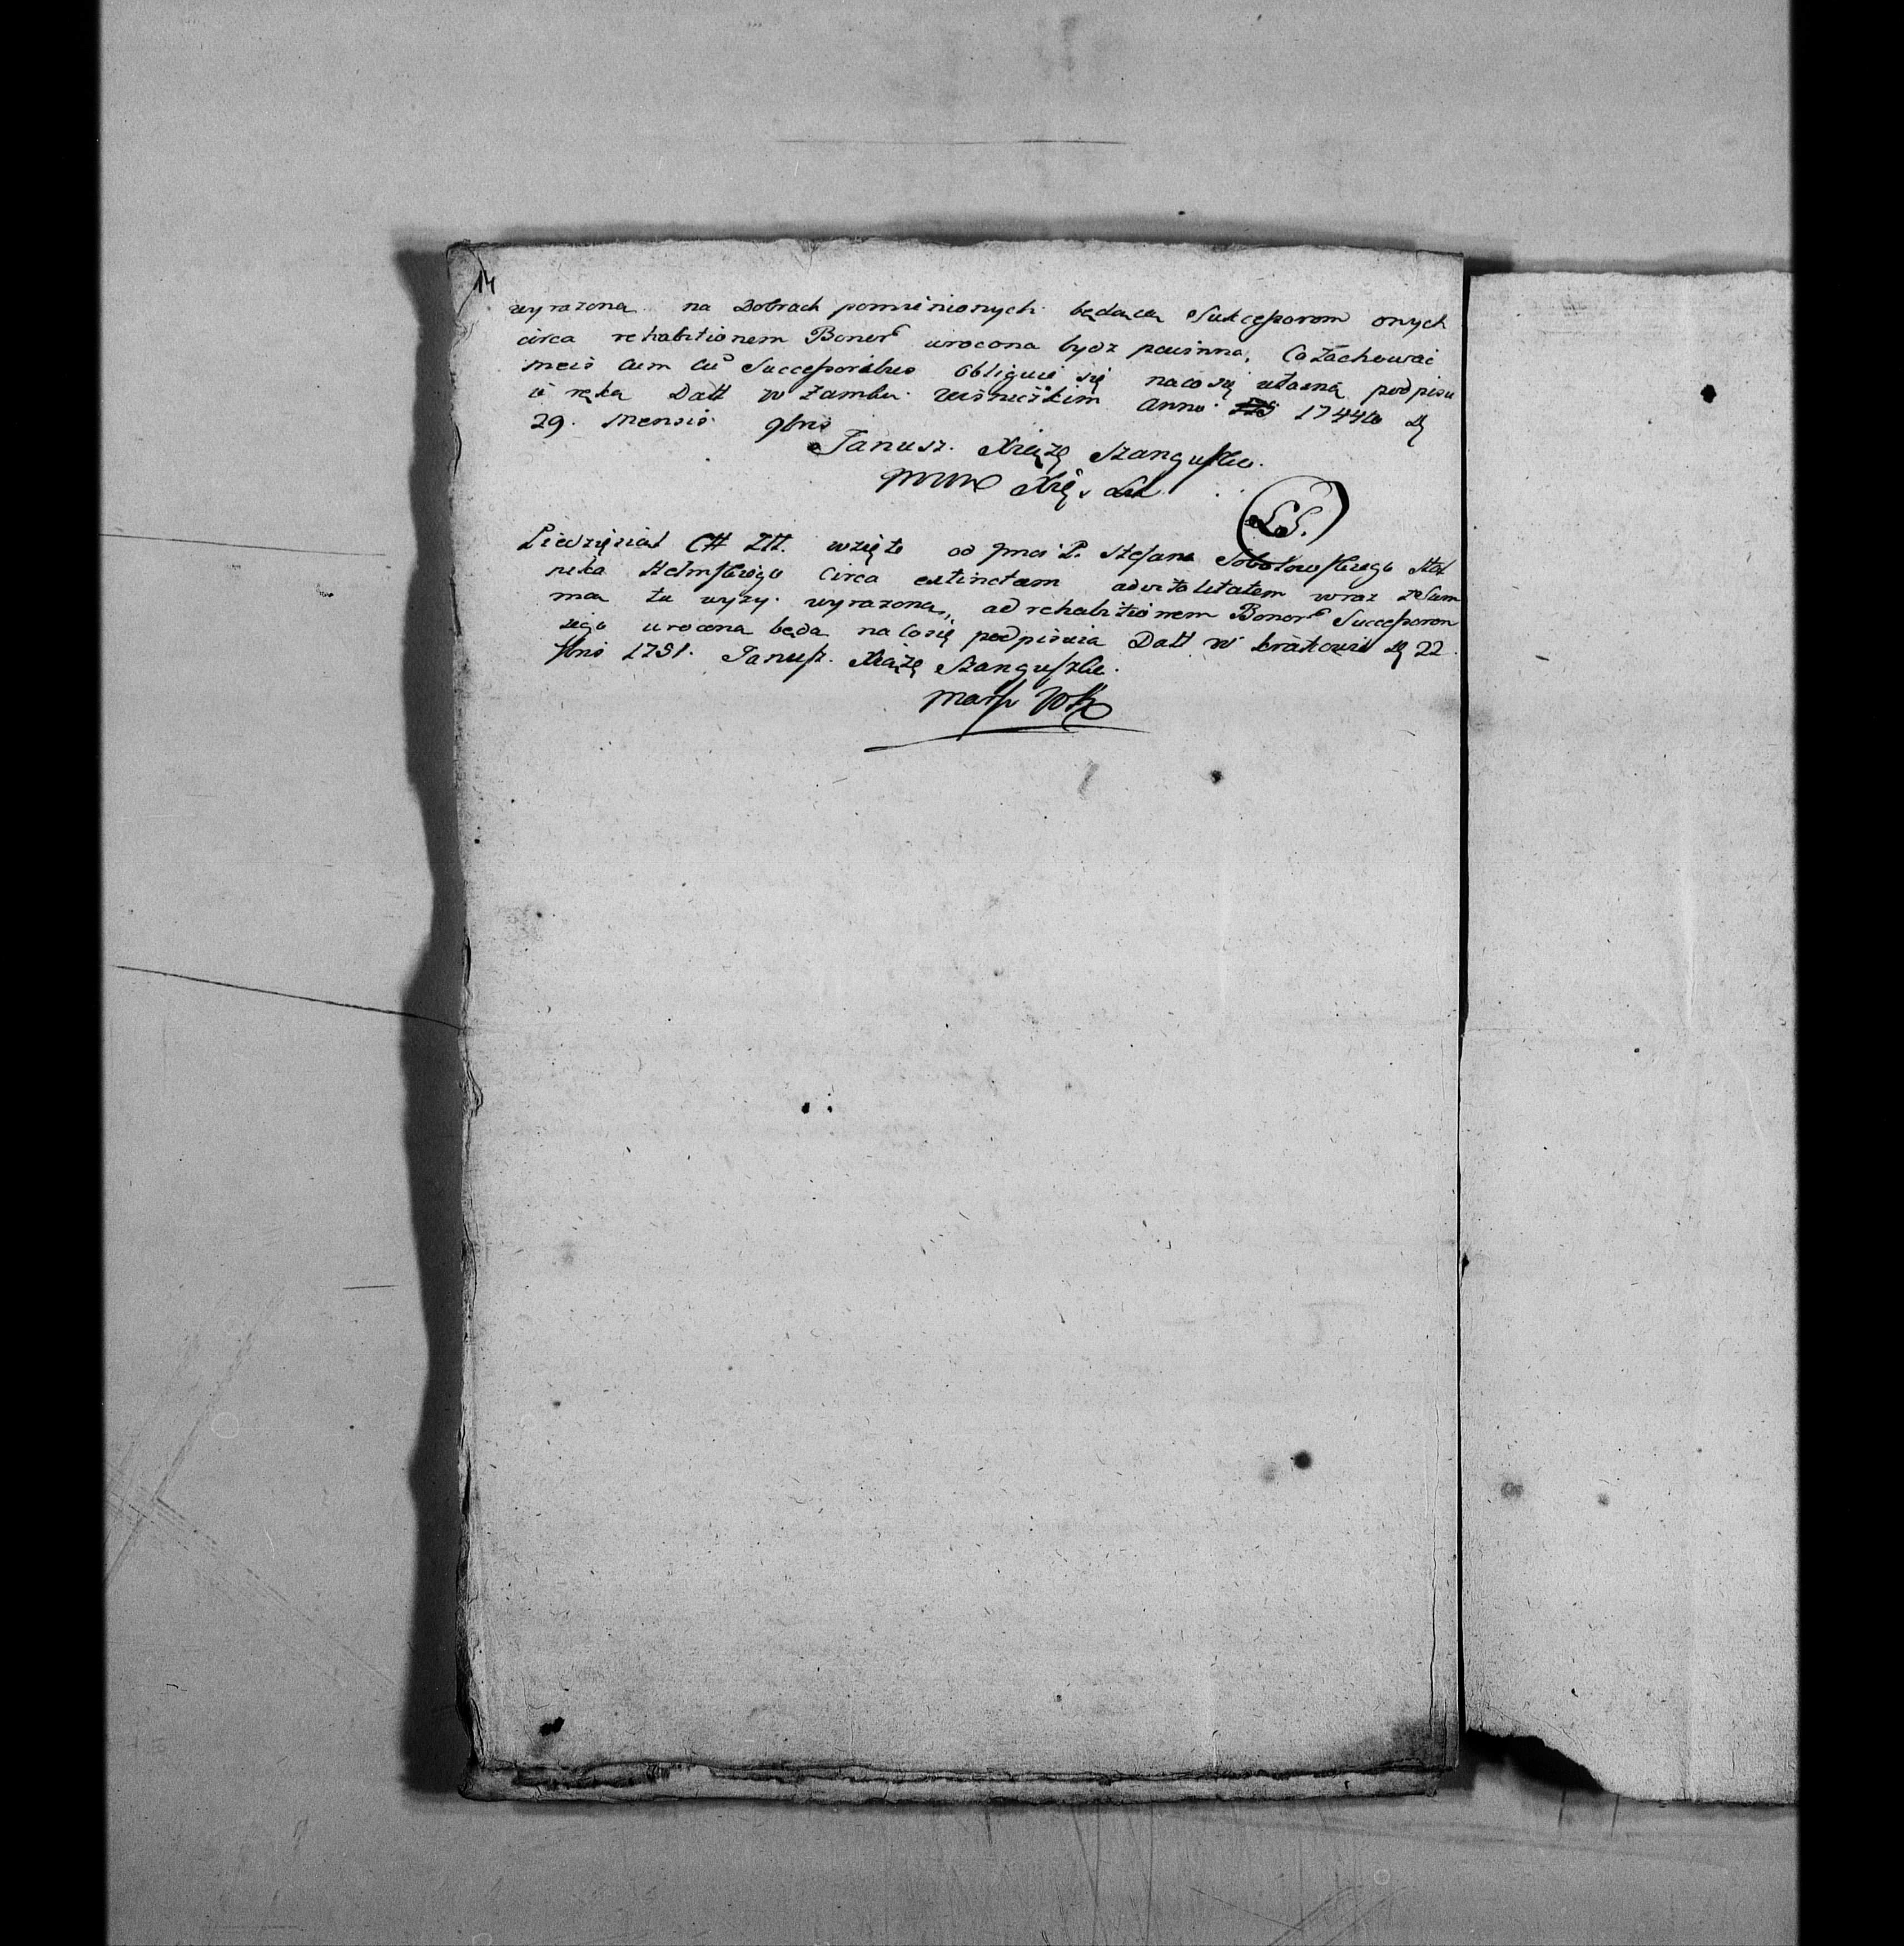 14
wyrazona na Dobrach pomienionych będąca Sukcessorom onych
circa rehabitionem Bonor urocona bydz powinna, Co Zachować
meis cum cũ Successoribus obliguie się naco się własną podpisu
ię ręką Datt w Zamku Wisnickim Anno 1744to d
29. Mensis 9bris
Janusz Xiążę Szangusko.
Xię Lit
LS.
Piedziesiąt Ctt Ztt. wzięte od Jmci P. Stefana Sobolowskiego Stol
nika Helmskiego Circa extinctam advitalitatem wraz z Sum
ma tu wyzy wyrazona, ad rehabitionem Bonor Successorom
iego urocona będą na Co się podpisuią Datt w Krakowie d 22
1751. Janusz Xiążę Szanguszko.
Marsz WX